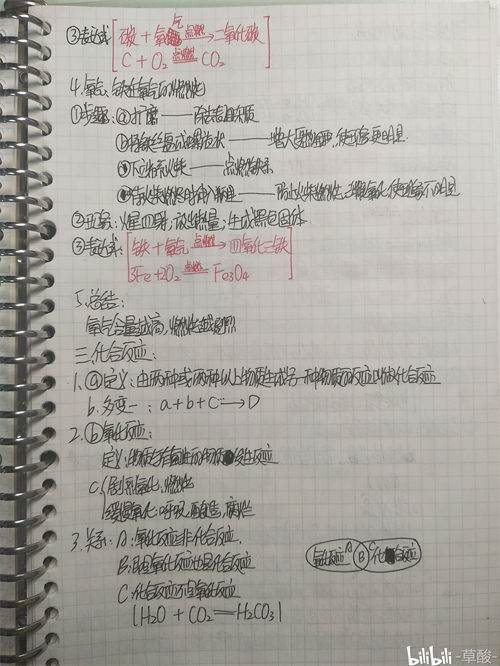 ③表达式 碳 + 氧气 点燃→ 二氧化碳
C + O2 点燃 CO2
4. 氧气、铁在氧气的燃烧
①步骤: ⓐ打磨——除去表面铁锈
ⓑ将铁丝盘成螺旋状——增大受热面积,使现象更明显
ⓒ下端系火柴——点燃铁丝
②现象: 火星四射; 放出热量; 生成黑色固体
③表达式: 铁 + 氧气 点燃→ 四氧化三铁
3Fe + 2O2 点燃 Fe3O4
5. 总结:
氧气含量越高, 燃烧越剧烈
三. 化合反应:
1. ⓐ定义: 由两种或两种以上物质生成另一种物质的反应叫做化合反应
b. 多变一: a + b + C → D
2. ⓑ氧化反应:
定义: 物质与氧发生反应
C. 剧烈氧化: 燃烧
缓慢氧化: 呼吸、酿造、腐烂
3. 关系: A: 氧化反应非化合反应
B: 既是氧化反应也是化合反应
C: 化合反应不是氧化反应
(H2O + CO2 = H2CO3)
氧化反应 A B C 化合反应
bilibili -草酸-